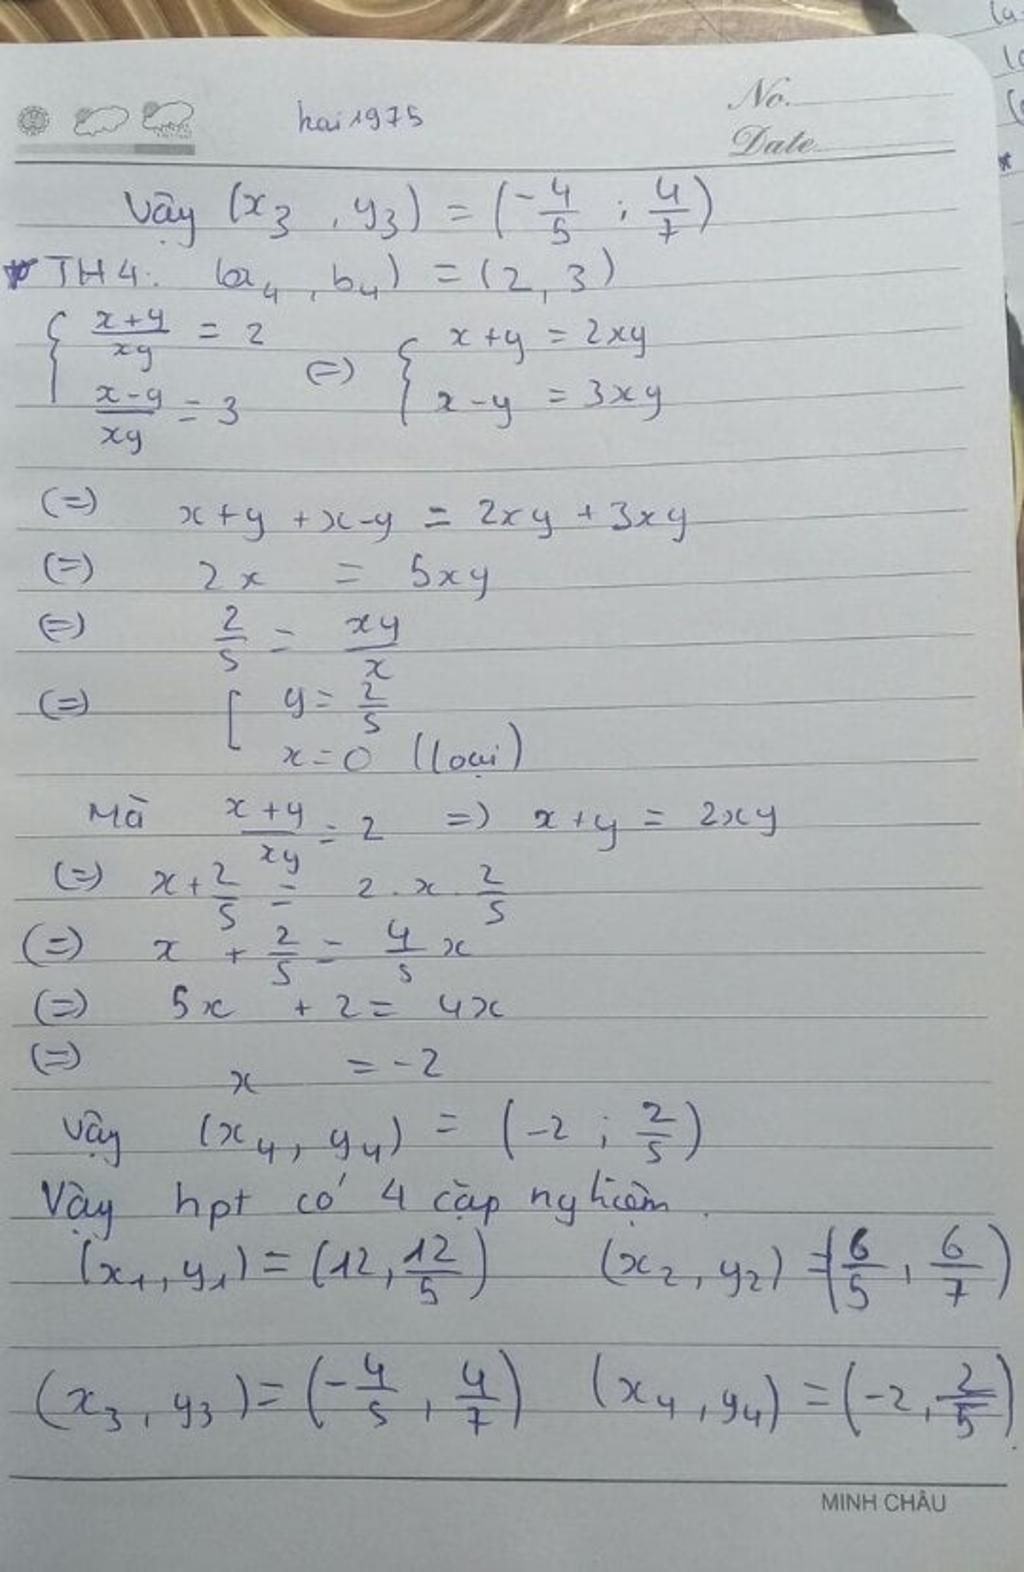 No.
hai1975
Date
Vậy (x₃, y₃) = (-4/5 ; 4/7)
* TH4: (a₄, b₄) = (2, 3)
{ (x+y)/(xy) = 2 (=) { x+y = 2xy
(x-y)/(xy) = 3 x-y = 3xy
(=) x+y+x-y = 2xy+3xy
(=) 2x = 5xy
(=) 2/5 = xy/x
(=) [ y = 2/5
x=0 (loại)
Mà (x+y)/(xy) = 2 =) x+y = 2xy
(=) x + 2/5 = 2 . x . 2/5
(=) x + 2/5 = 4/5 x
(=) 5x + 2 = 4x
(=) x = -2
Vậy (x₄, y₄) = (-2 ; 2/5)
Vậy hpt có 4 cặp nghiệm.
(x₁, y₁) = (12, 12/5) (x₂, y₂) = (6/5, 6/7)
(x₃, y₃) = (-4/5, 4/7) (x₄, y₄) = (-2, 2/5)
MINH CHÂU